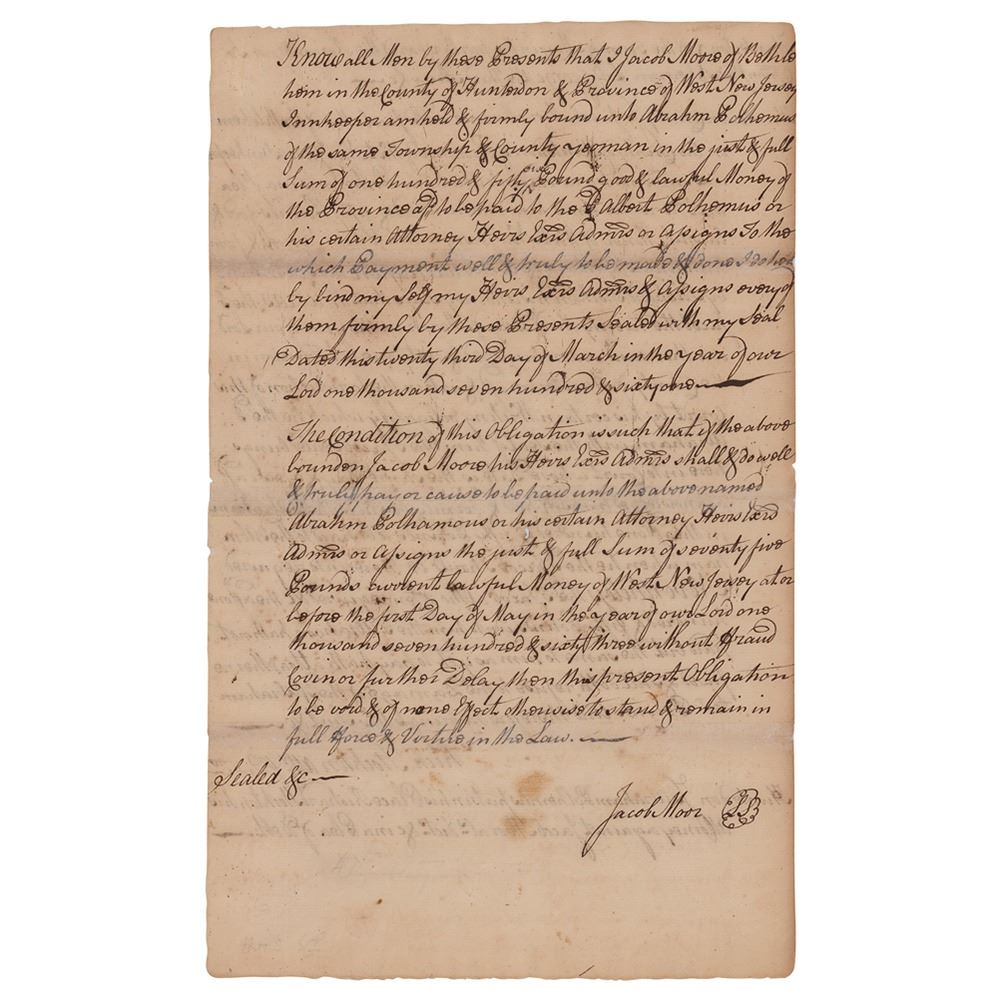 Know all Men by these Presents that I Jacob Moore of Bethle
hem in the County of Hunterdon & Province of West New Jersey
Innkeeper am held & firmly bound unto Abrahm Polhemus
of the same Township & County yeoman in the just & full
Sum of one hundred & fifty Pound good & lawful Money of
the Province afd to be paid to the sd Albert Polhemus or
his certain Attorney Heirs Exrs Admrs or Assigns To the
which Payment well & truly to be made & done I do here
by bind my Self my Heirs Exrs Admrs & Assigns every of
them firmly by these Presents Sealed with my Seal
Dated this twenty third Day of March in the year of our
Lord one thousand seven hundred & sixty one
The Condition of this Obligation is such that if the above
bounden Jacob Moore his Heirs Exrs Admrs shall & do well
& truly pay or cause to be paid unto the above named
Abrahm Polhamous or his certain Attorney Heirs Exrs
Admrs or Assigns the just & full Sum of seventy five
Pounds current lawful Money of West New Jersey at or
before the first Day of May in the year of our Lord one
thousand seven hundred & sixty three without Fraud
Covin or further Delay then this present Obligation
to be void & of none Effect otherwise to stand & remain in
full Force & Virtue in the Law.
Sealed &c
Jacob Moor LS